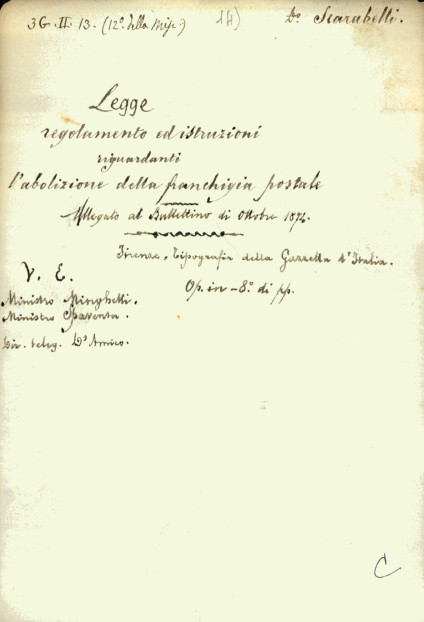 3G. II. 13. (12º. della Misc.)
1A)
Dº. Scarabelli.
Legge
regolamento ed istruzioni
riguardanti
l'abolizione della franchigia postale
Allegato al Bullettino di Ottobre 1874.
Firenze, Tipografia della Gazzetta d'Italia.
Op. in-8º. di pp.
V. E.
Ministro Minghetti.
Ministro Spaventa.
Dir. teleg. D'Amico.
C